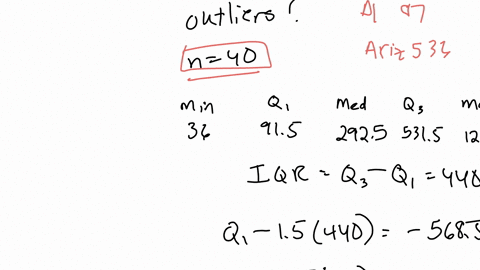 outliers?
n=40
Ariz 536
min Q1 med Q3
36 91.5 292.5 531.5 12
IQR = Q3 - Q1 = 440
Q1 - 1.5(440) = -568.5